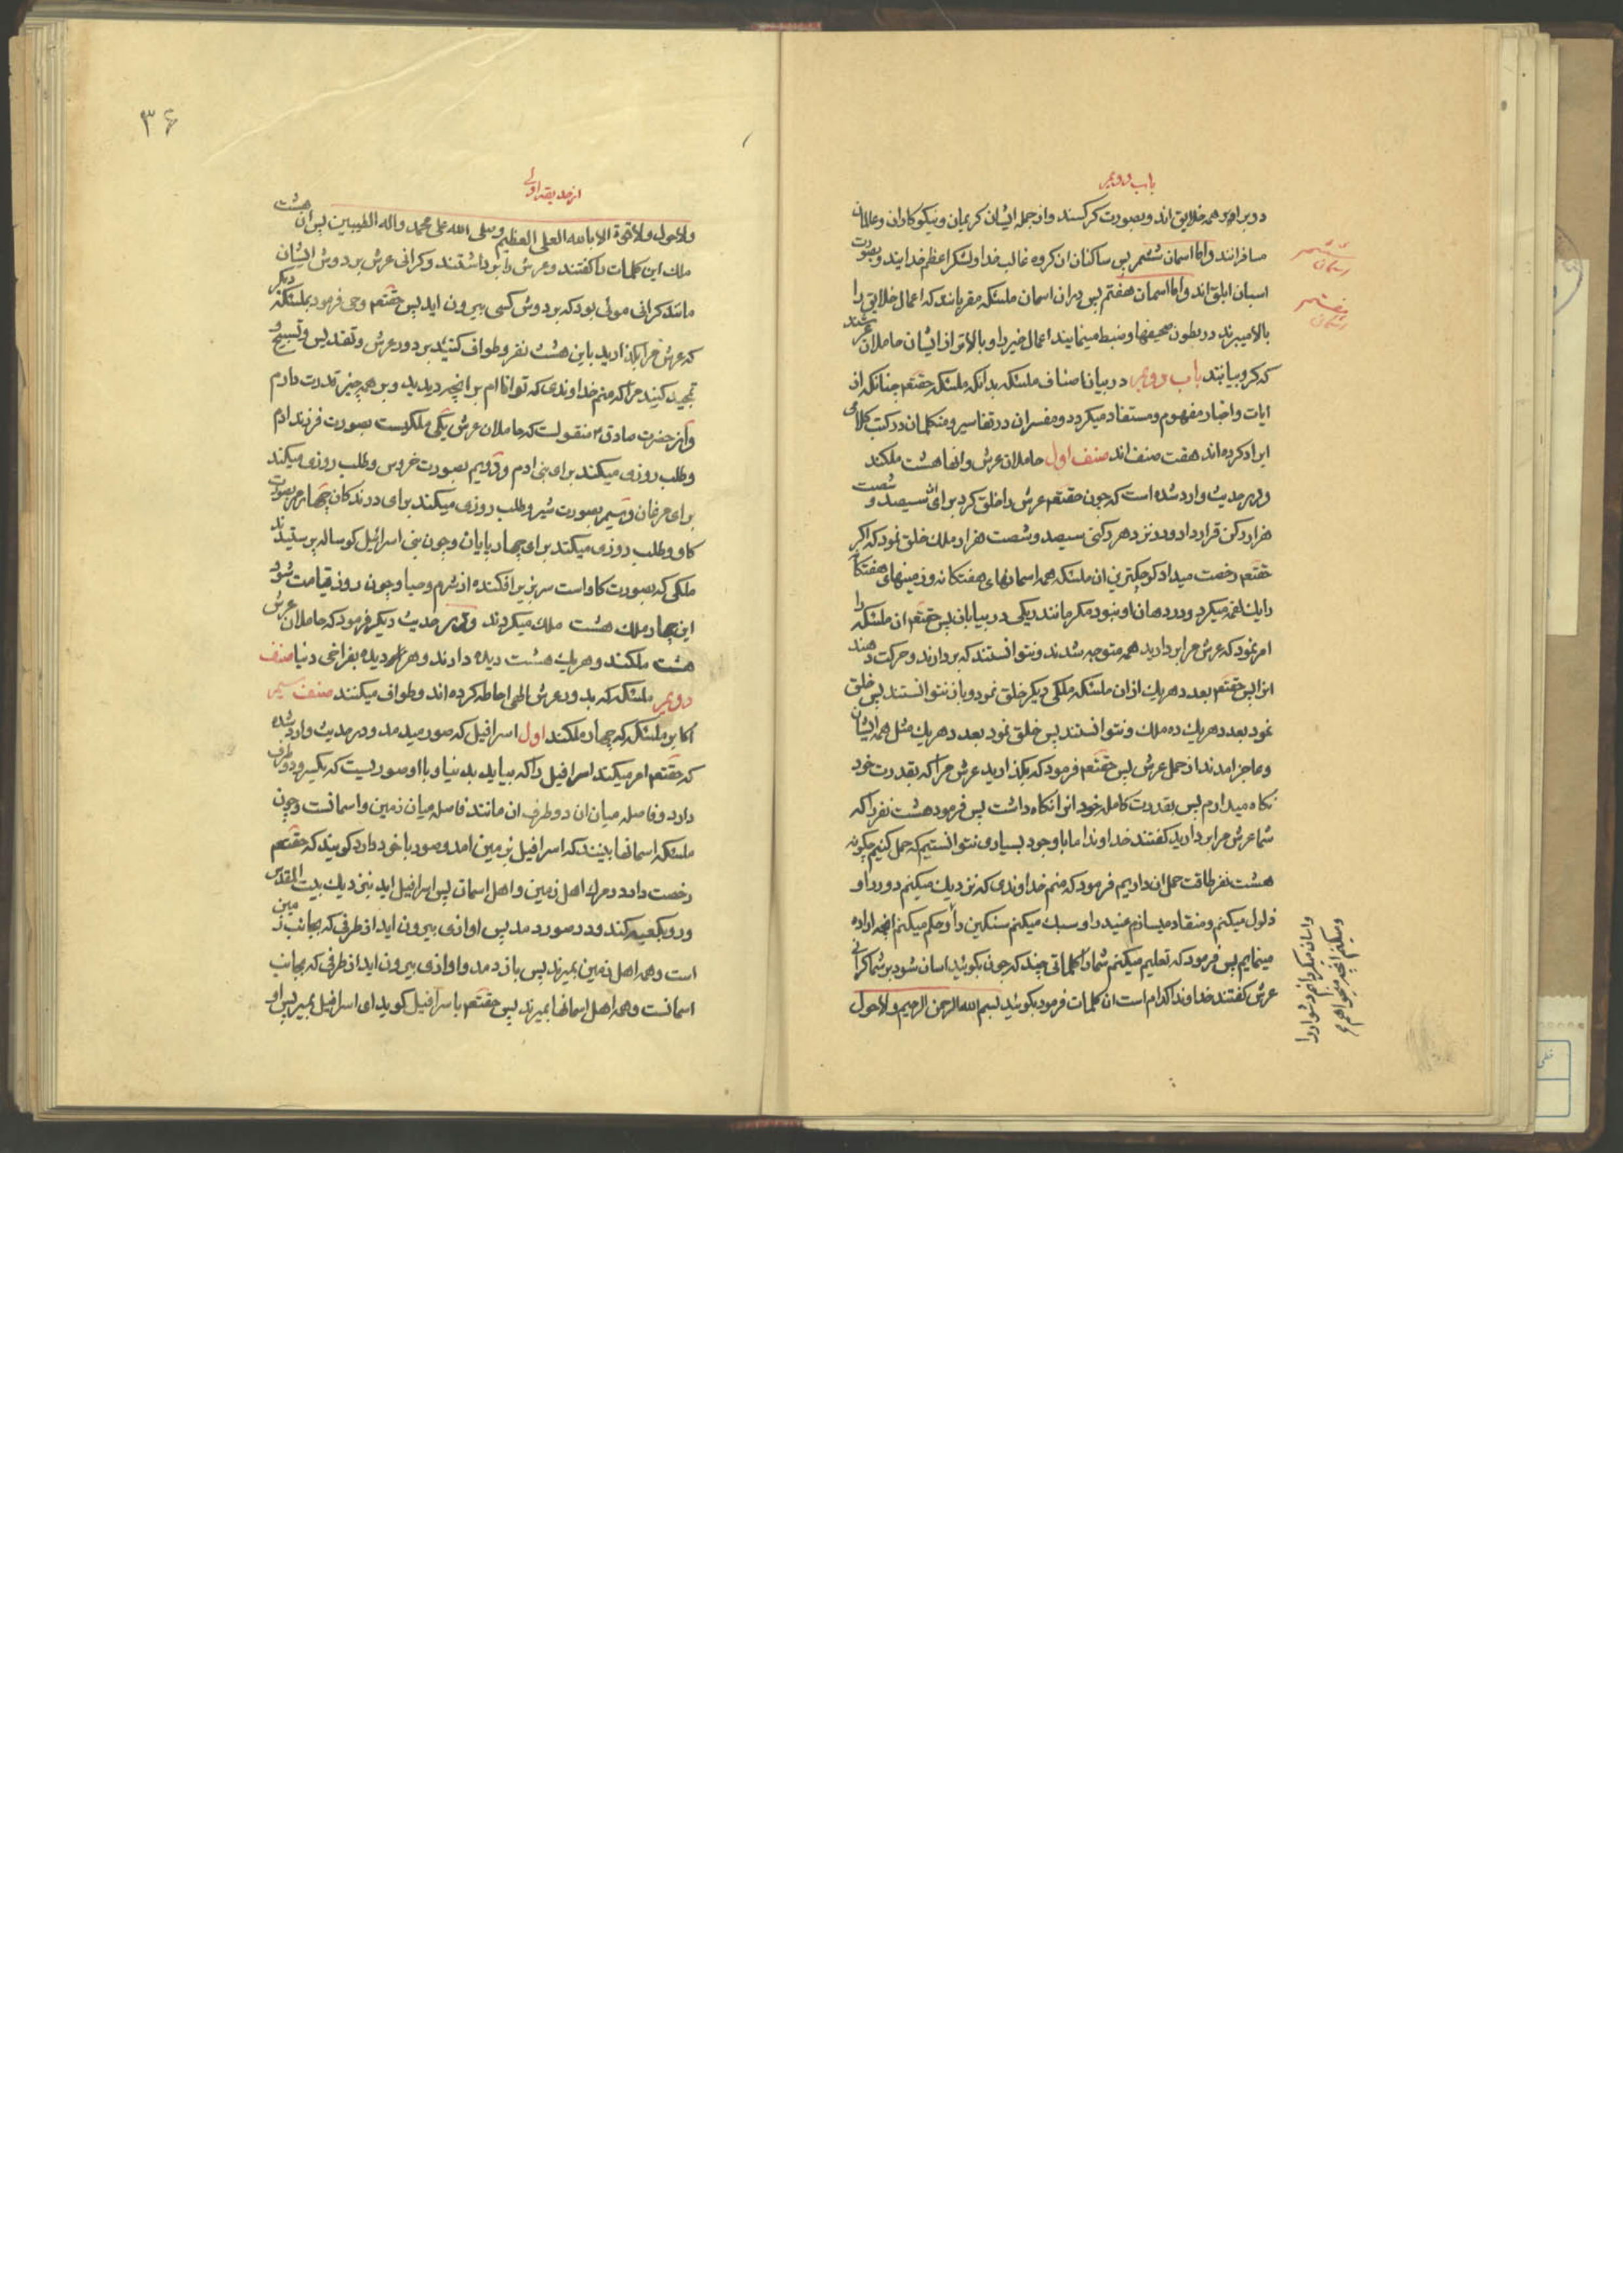 باب دویم
دو برابر همه خلایق اند و بصورت کرکسند و از جمله ایشان کریمان و نیکوکاران و عالمان
مسافرانند و اما اسمان ششم پس ساکنان ان کروه غالب خدا و لشکر اعظم خدایند و بصورت
اسبان ابلق اند و اما اسمان هفتم پس در ان اسمان ملئکه مقربانند که اعمال خلایق را
بالا میبرند در بطون صحیفها و ضبط مینمایند اعمال خیر را و بالاتر از ایشان حاملان عرشند
که کروبیانند باب دویم در بیان اصناف ملئکه بدانکه ملئکه حقتعم چنانکه از
ایات و اخبار مفهوم و مستفاد میکردد و مفسران در تفاسیر و متکلمان در کتب کلامی
ایراد کرده اند هفت صنف اند صنف اول حاملان عرش و انها هشت ملکند
و در حدیث وارد شده است که چون حقتعم عرش را خلق کرد برای ان سیصد و شصت
هزار رکن قرار داد و در نزد هر رکنی سیصد و شصت هزار ملک خلق نمود که اکر
حقتعم رخصت میداد کوچکترین ان ملئکه همه اسمانهای هفتکانه و زمینهای هفتکانه
را یک لقمه میکرد و در دهان او نبود مکر مانند ریکی در بیابان پس حقتعم ان ملئکه را
امر نمود که عرش مرا بردارید همه متوجه شدند و نتوانستند که بردارند و حرکت دهند
انرا پس حقتعم بعدد هر یک از ان ملئکه ملکی دیکر خلق نمود و باز نتوانستند پس خلق
نمود بعدد هر یک ده ملک و نتوانستند پس خلق نمود بعدد هر یک مثل همه ایشان
و عاجز امدند از حمل عرش پس حقتعم فرمود که بکذارید عرش مرا که بقدرت خود
نکاه میدارم پس بقدرت کامله خود انرا نکاه داشت پس فرمود هشت نفر را که
شما عرش مرا بردارید کفتند خداوندا ما با وجود بسیاری نتوانستیم که حمل کنیم چکونه
هشت نفر طاقت حمل ان داریم فرمود که منم خداوندی که نزدیک میکنم دور را و
ذلول میکنم و منقاد میسازم عنید را و سبک میکنم سنکین را و حکم میکنم انچه اراده
مینمایم پس فرمود که تعلیم میکنم شما را کلماتی چند که چون بکوئید اسان شود بر شما کرانی
عرش کفتند خداوندا کدام است ان کلمات فرمود بکوئید بسم الله الرحمن الرحیم و لا حول
ششم
اسمان
هفتم
اسمان
و اسان میکردانم دشوار را
و میکنم انچه میخواهم
۳۶
از حدیقه اولی
ولا حول ولا قوة الا بالله العلی العظیم و صلی الله علی محمد و اله الطیبین پس ان هشت
ملک این کلمات را کفتند و عرش را برداشتند و کرانی عرش بر دوش ایشان
مانند کرانی موئی بود که بر دوش کسی بیرون اید پس حقتعم وحی فرمود بملئکه دیکر
که عرش مرا بکذارید باین هشت نفر و طواف کنید بر دور عرش و تقدیس و تسبیح و
تمجید کنید مرا که منم خداوندی که توانا ام بر انچه دیدید و بر همه چیز قدرت دارم
و از حضرت صادق ع منقولست که حاملان عرش یکی ملکیست بصورت فرزند ادم
و طلب روزی میکند برای بنی ادم و دویم بصورت خروس و طلب روزی میکند
برای مرغان و سیم بصورت شیر و طلب روزی میکند برای درندکان چهارم بصورت
کاو و طلب روزی میکند برای چهارپایان و چون بنی اسرائیل کوساله پرستیدند
ملکی که بصورت کاو است سر بزیر افکنده از شرم و حیا و چون روز قیامت شود
این چهار ملک هشت ملک میکردند و در حدیث دیکر فرمود که حاملان عرش
هشت ملکند و هر یک هشت دیده دارند و هر دیده بفراخی دنیا صنف
دویم ملئکه که بدور عرش الهی احاطه کرده اند و طواف میکنند صنف سیم
اکابر ملئکه که چهار ملکند اول اسرافیل که صور میدمد و در حدیث وارد شده
که حقتعم امر میکند اسرافیل را که بیاید بدنیا و با او صوریست که یکسر و دو طرف
دارد و فاصله میان ان دو طرف ان مانند فاصله میان زمین و اسمانست و چون
ملئکه اسمانها بینند که اسرافیل بزمین امد و صور با خود دارد کویند که حقتعم
رخصت داد در مرک اهل زمین و اهل اسمان پس اسرافیل اید بنزدیک بیت المقدس
و رو بکعبه کند و در صور دمد پس اوازی بیرون اید از طرفی که بجانب زمین
است و همه اهل زمین بمیرند پس باز دمد و اوازی بیرون اید از طرفی که بجانب
اسمانست و همه اهل اسمانها بمیرند پس حقتعم با سرافیل کوید ای اسرافیل بمیر پس او